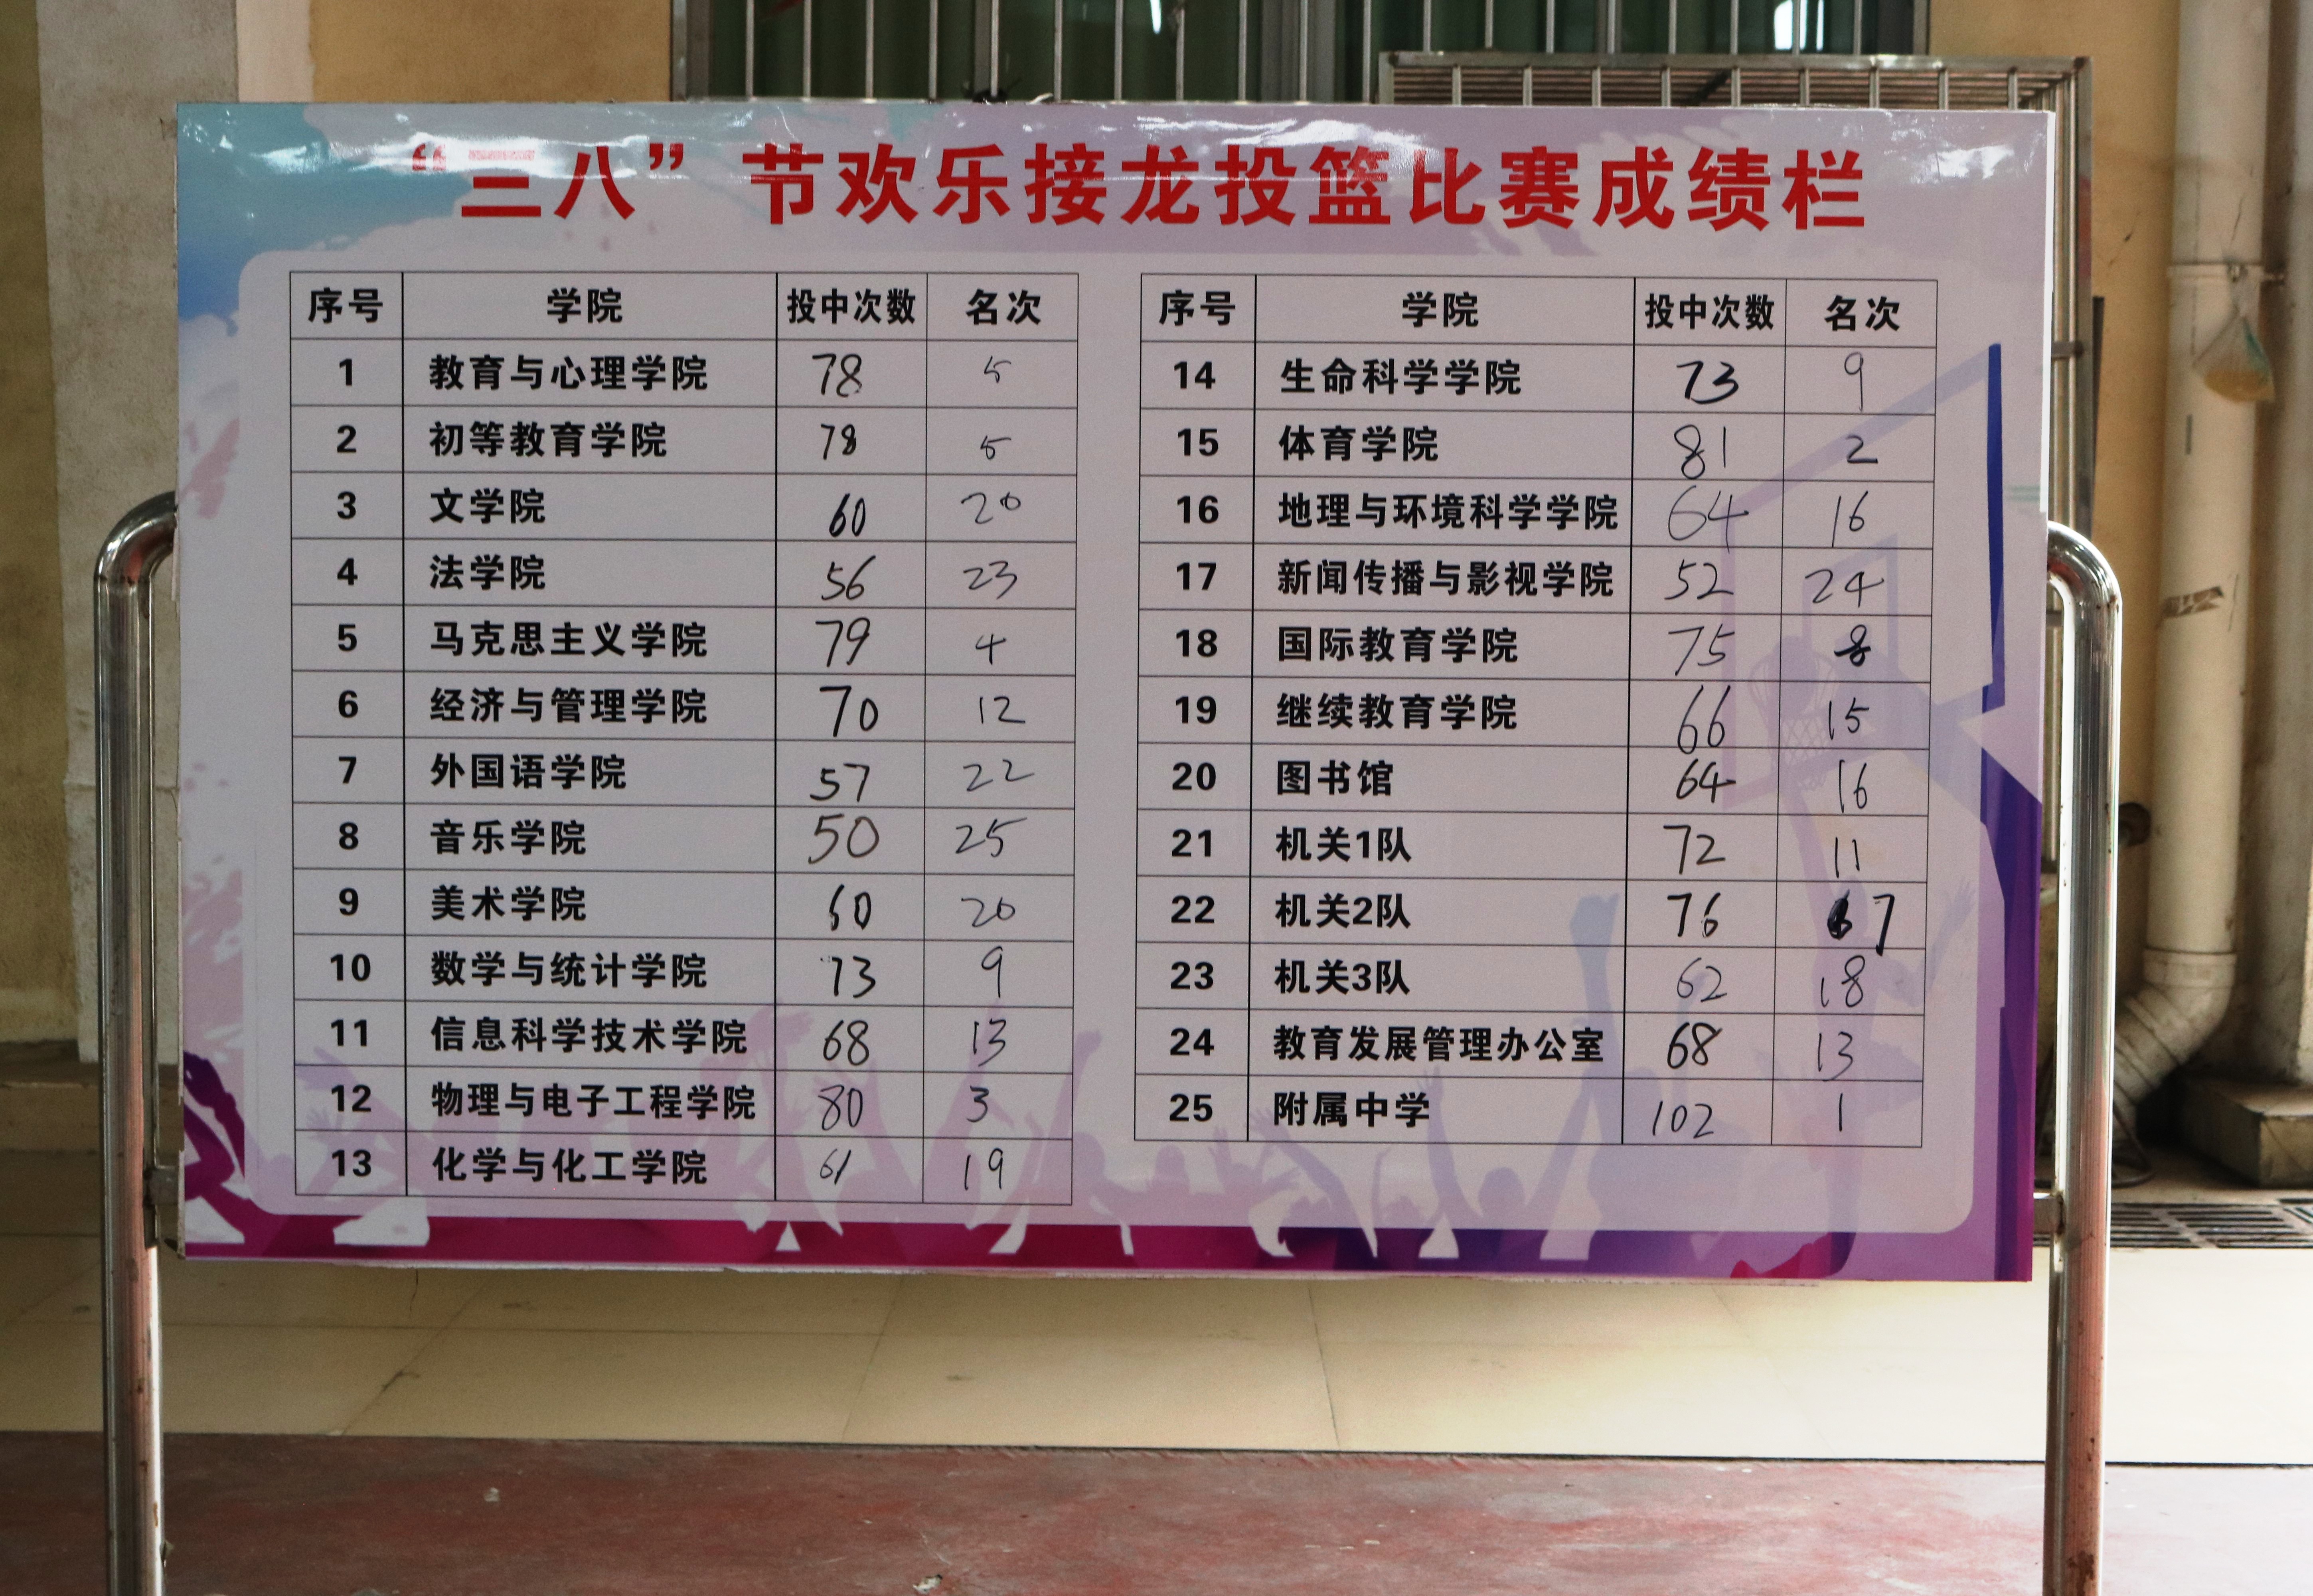 “三八”节欢乐接龙投篮比赛成绩栏
序号 学院 投中次数 名次
1 教育与心理学院 78 5
2 初等教育学院 78 5
3 文学院 60 20
4 法学院 56 23
5 马克思主义学院 79 4
6 经济与管理学院 70 12
7 外国语学院 57 22
8 音乐学院 50 25
9 美术学院 60 20
10 数学与统计学院 73 9
11 信息科学技术学院 68 13
12 物理与电子工程学院 80 3
13 化学与化工学院 61 19
序号 学院 投中次数 名次
14 生命科学学院 73 9
15 体育学院 81 2
16 地理与环境科学学院 64 16
17 新闻传播与影视学院 52 24
18 国际教育学院 75 8
19 继续教育学院 66 15
20 图书馆 64 16
21 机关1队 72 11
22 机关2队 76 7
23 机关3队 62 18
24 教育发展管理办公室 68 13
25 附属中学 102 1